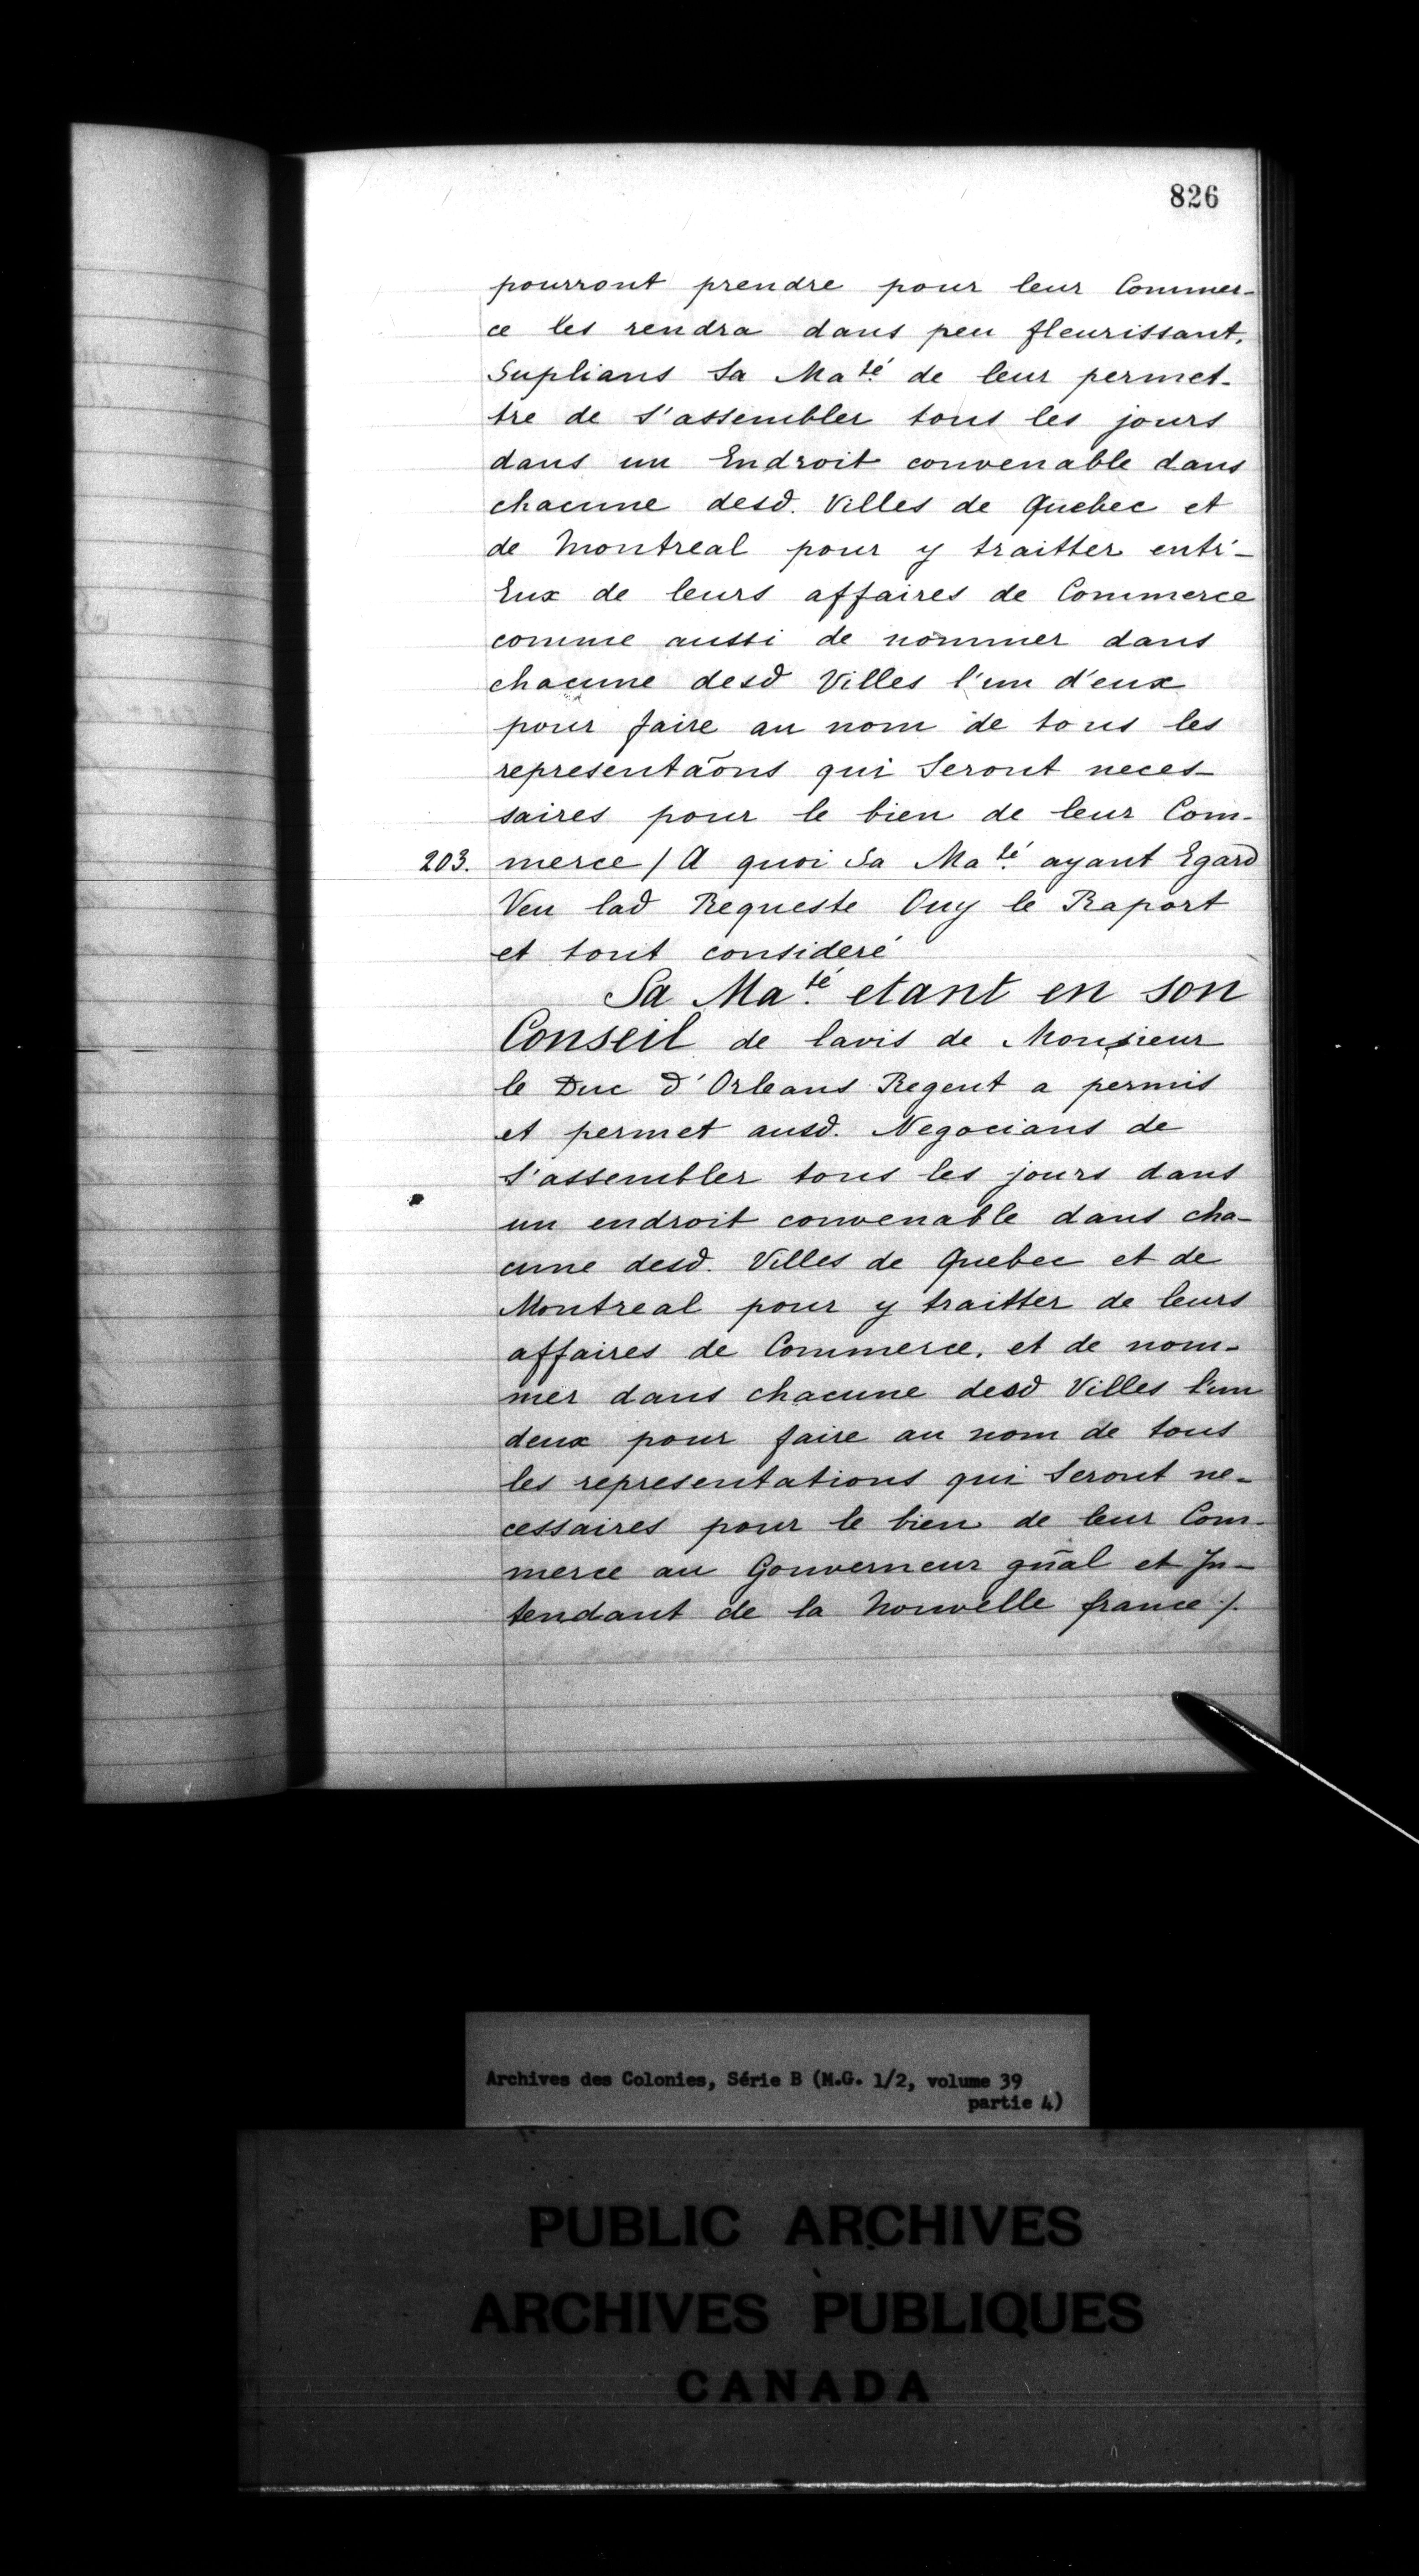 826
pourront prendre pour leur Commer-
ce les rendra dans peu fleurissant,
Suplians Sa Maté de leur permet-
tre de s'assembler tous les jours
dans un Endroit convenable dans
chacune desd. Villes de Quebec et
de Montreal pour y traitter entr'-
Eux de leurs affaires de Commerce
comme aussi de nommer dans
chacune desd Villes l'un d'eux
pour faire au nom de tous les
representaõns qui Seront neces-
saires pour le bien de leur Com-
203. merce / A quoi Sa Maté ayant Egard
Veu lad Requeste Ouy le Raport
et tout consideré
Sa Maté etant en son
Conseil de lavis de Monsieur
le Duc d'Orleans Regent a permis
et permet ausd. Negocians de
S'assembler tous les jours dans
un endroit convenable dans cha-
cune desd. Villes de Quebec et de
Montreal pour y traitter de leurs
affaires de Commerce, et de nom-
mer dans chacune desd Villes l'un
deux pour faire au nom de tous
les representations qui Seront ne-
cessaires pour le bien de leur Com-
merce au Gouverneur gñal et In-
tendant de la Nouvelle france /.
Archives des Colonies, Série B (M.G. 1/2, volume 39
partie 4)
PUBLIC ARCHIVES
ARCHIVES PUBLIQUES
CANADA